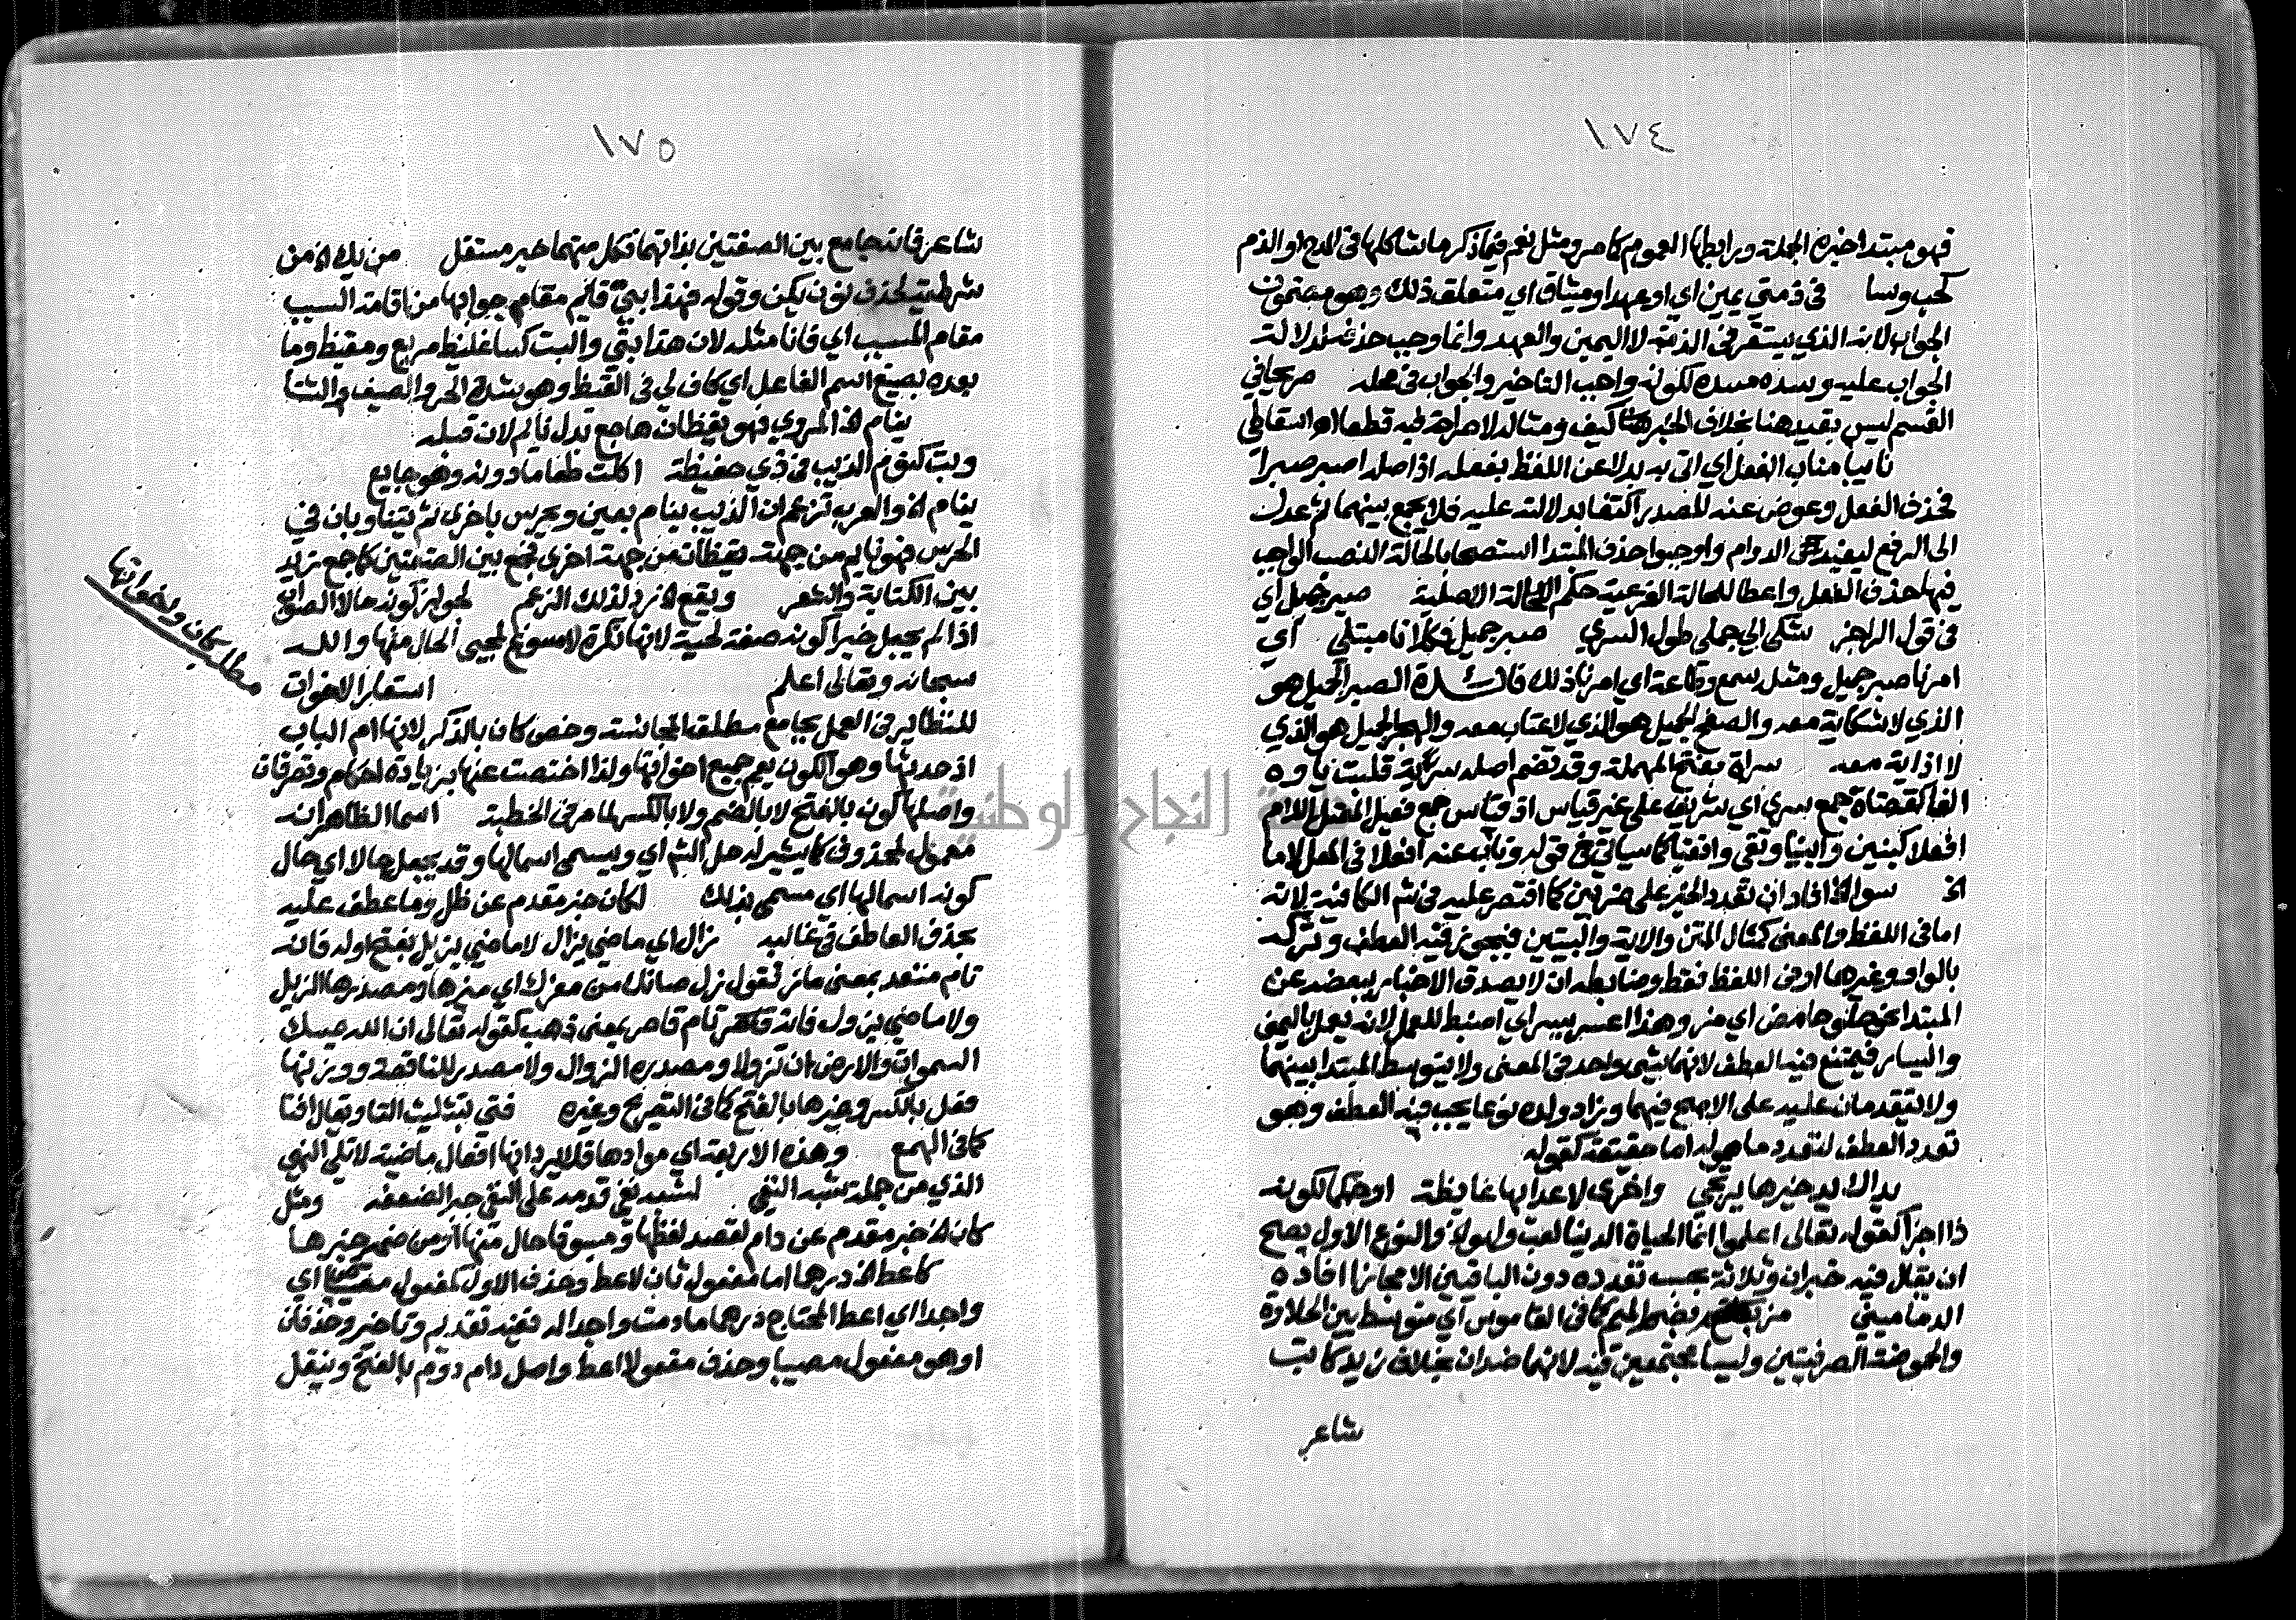 ١٧٤
فهو مبتدا خبره الجملة ورابطها العموم كما مر ومثل نعم فيما ذكر ما شاكلها في المدح او الذم
كحب وسا في ذمتي يمين اي او عهد او ميثاق اي متعلق ذلك وهو مضمون
الجواب لانه الذي يستقر في الذمة لا اليمين والعهد وانما وجب حذفه لدلالة
الجواب عليه وسده مسده لكونه واجب التاخير والجواب في محله صريحا في
القسم ليس بقيد هنا بخلاف الخبر كيف ومثاله لا صراحة فيه قطعا اسقاطي
نايبا مناب الفعل اي اتى به بدلا عن اللفظ بفعله اذ اصله اصبر صبرا
فحذف الفعل وعوض عنه المصدر اكتفا بدلالته عليه فلا يجمع بينهما ثم عدل
الى الرفع ليفيد الدوام واوجبوا حذف المبتدا استصحابا لحالة النصب الواجب
فيها حذف الفعل واعطا للحالة الفرعية حكم الحالة الاصلية صبر جميل اي
في قول الراجز شكى الي جملي طول السرى صبر جميل فكلانا مبتلى اي
امرنا صبر جميل ومثله سمع وطاعة اي امرنا ذلك فائدة الصبر الجميل هو
الذي لا شكاية معه والصفح الجميل هو الذي لا عتاب معه والهجر الجميل هو الذي
لا اذاية معه سراة بفتح المهملة وقد تضم اصله سرية قلبت ياوه
الفا كقضاة جمع سري اي شريف على غير قياس اذ قياس جمع فعيل المعتل اللام
افعلا كنبيين وانبيا وتقي واتقيا كما سياتي في قوله وناب عنه افعلا في المعل لاما
الخ سوا الخ افاد ان تعدد الخبر على ضربين كما اقتصر عليه في شرح الكافية لانه
اما في اللفظ والمعنى كمثال المتن والاية والبيتين فيجوز فيه العطف وتركه
بالواو وغيرها او في اللفظ فقط وضابطه ان لا يصدق الاخبار ببعضه عن
المبتدا نحو حلو حامض اي مز وهذا اعسر يسر اي اضبط للعمل لانه يعمل باليمنى
واليسار فيمتنع فيه العطف لانهما شي واحد في المعنى ولا يتوسط المبتدا بينهما
ولا يتقدمان عليه على الاصح فيهما وزاد ولده نوعا يجب فيه العطف وهو
تعدد العطف لتعدد ما هو له اما حقيقة كقوله
يداك يد خيرها يرتجى واخرى لاعدايها غايظة او حكما لكونه
ذا اجزا كقوله تعالى اعلموا انما الحياة الدنيا لعب ولهو الخ والنوع الاول يصح
ان يقال فيه خبران وثلاثة بحسب تعدده دون الباقيين الا مجازا افاده
الدماميني مز بضم الميم كما في القاموس اي متوسط بين الحلاوة
والحموضة الصرفيتين وليسا مجتمعين فيه لانهما ضدان بخلاف زيد كاتب
شاعر
١٧٥
شاعر فانه جامع بين الصفتين بذاتهما فكل منهما خبر مستقل من يك الخ من
شرطية لحذف نون يكن وقوله فهذا بتي قائم مقام جوابها من اقامة السبب
مقام المسبب اي فانا مثله لان هذا بتي والبت كسا غليظ مربع ومقيظ وما
بعده بصيغ اسم الفاعل اي كاف لي في القيظ وهو شدة الحر والصيف والشتا
ينام الخ المروي فهو يقظان هاجع بدل نايم لان قبله
وبت كنوم الذيب في ذي حفيظة اكلت طعاما دونه وهو جايع
ينام الخ والعرب تزعم ان الذيب ينام بعين ويحرس باخرى ثم يتناوبان في
الحرس فهو نايم من جهة يقظان من جهة اخرى فجمع بين الصفتين كما جمع زيد
بين الكتابة والشعر ويقع الخ رد لذلك الزعم لجواز كونه حالا الصواب
اذا لم يجعل خبرا كونه صفة لحية لانها نكرة لا مسوغ لمجيى الحال منها والله
سبحانه وتعالى اعلم استعار الاخوات
مطلب كان واخواتها
للنظاير في العمل بجامع مطلق المجانسة وخص كان بالذكر لانها ام الباب
اذ حدثها وهو الكون يعم جميع اخواتها ولذا اختصت عنها بزيادة احكام وتصرفات
واصلها كون بالفتح لا بالضم ولا بالكسر لما مر في الخطبة اسما الظاهر انه
معمول لمحذوف كما يشير له حل الشم اي ويسمى اسما لها وقد يجعل حالا اي حال
كونه اسما لها اي مسمى بذلك لكان خبر مقدم عن ظل وما عطف عليه
بحذف العاطف في غالبه زال اي ماضي يزال لا ماضي يزيل بفتح اوله فانه
تام متعد بمعنى ماز تقول زل ضانك من معزك اي ميزها ومصدرها الزيل
ولا ماضي يزول فانه تام قاصر بمعنى ذهب كقوله تعالى ان الله يمسك
السموات والارض ان تزولا ومصدره الزوال ولا مصدر للناقصة ووزنها
فعل بالكسر وغيرها بالفتح كما في التصريح وغيره فتي بتثليث التا ويقال افتا
كما في الهمع وهذه الاربعة اي موادها فلا يرد انها افعال ماضية لا تلي النهي
الذي من جملة شبه النفي لشبه نفي قدمه على النفي جبرا لضعفه ومثل
كان الخ خبر مقدم عن دام لقصد لفظها ومسبوقا حال منها او من ضمير خبرها
كاعط الخ درهما اما مفعول ثان لاعط وحذف الاول كمفعول مصيبا اي
واجدا اي اعط المحتاج درهما ما دمت واجدا له ففيه تقديم وتاخير وحذفان
او هو مفعول مصيبا وحذف مفعولا اعط واصل دام دوم بالفتح وينقل